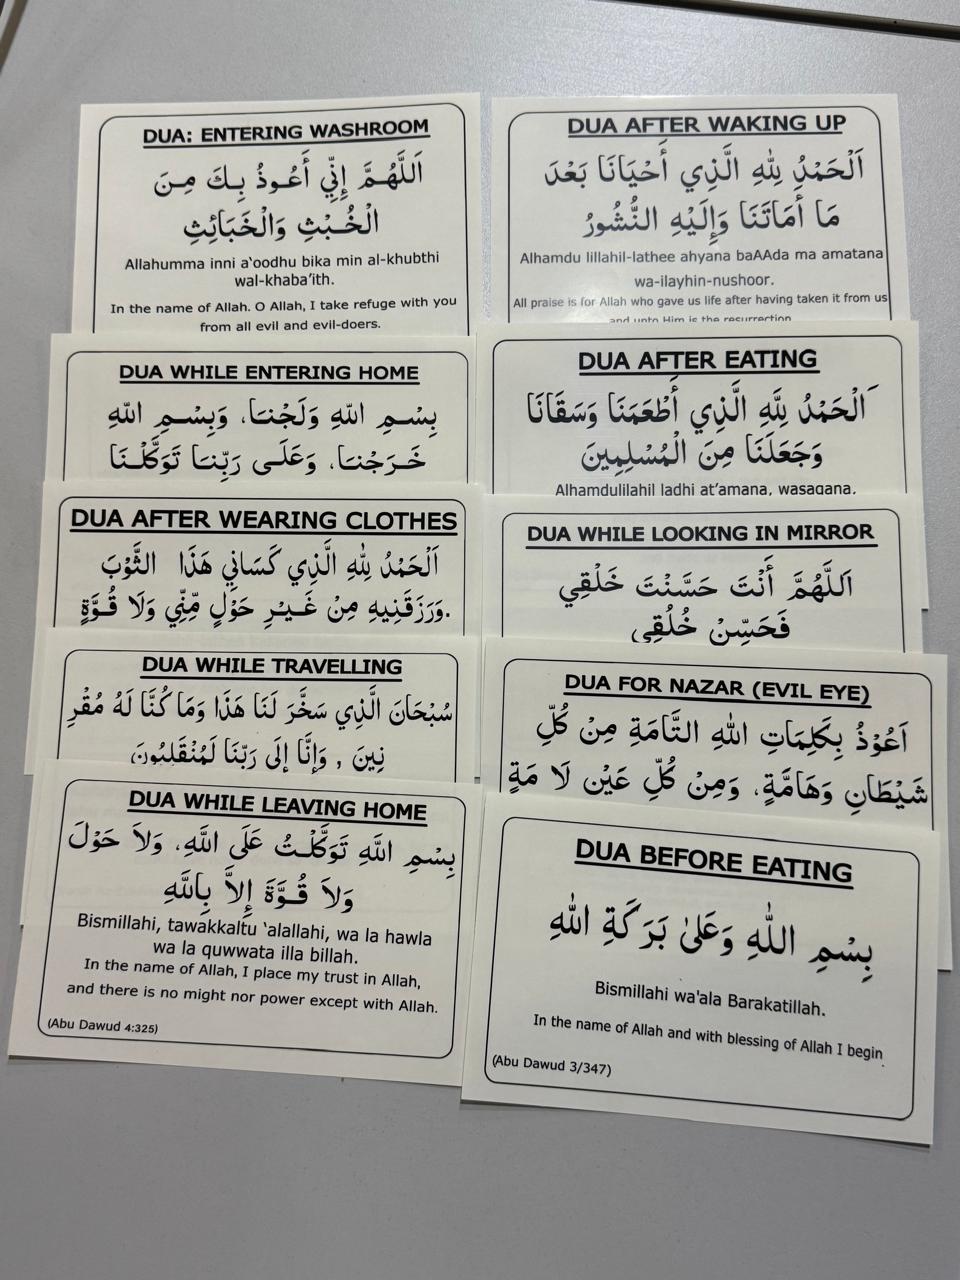 DUA: ENTERING WASHROOM
اَللَّهُمَّ إِنِّي أَعُوذُ بِكَ مِنَ
الْخُبْثِ وَالْخَبَائِثِ
Allahumma inni a‘oodhu bika min al-khubthi
wal-khaba’ith.
In the name of Allah. O Allah, I take refuge with you
from all evil and evil-doers.
DUA WHILE ENTERING HOME
بِسْمِ اللهِ وَلَجْنَا، وَبِسْمِ اللهِ
خَرَجْنَا، وَعَلَى رَبِّنَا تَوَكَّلْنَا
DUA AFTER WEARING CLOTHES
اَلْحَمْدُ لِلَّهِ الَّذِي كَسَانِي هَذَا الثَّوْبَ
وَرَزَقَنِيهِ مِنْ غَيْرِ حَوْلٍ مِّنِّي وَلَا قُوَّةٍ.
DUA WHILE TRAVELLING
سُبْحَانَ الَّذِي سَخَّرَ لَنَا هَذَا وَمَا كُنَّا لَهُ مُقْرِ
نِينَ , وَإِنَّا إِلَى رَبِّنَا لَمُنْقَلِبُونَ
DUA WHILE LEAVING HOME
بِسْمِ اللَّهِ تَوَكَّلْتُ عَلَى اللَّهِ، وَلاَ حَوْلَ
وَلاَ قُوَّةَ إِلاَّ بِاللَّهِ
Bismillahi, tawakkaltu ‘alallahi, wa la hawla
wa la quwwata illa billah.
In the name of Allah, I place my trust in Allah,
and there is no might nor power except with Allah.
(Abu Dawud 4:325)
DUA AFTER WAKING UP
اَلْحَمْدُ لِلَّهِ الَّذِي أَحْيَانَا بَعْدَ
مَا أَمَاتَنَا وَإِلَيْهِ النُّشُورُ
Alhamdu lillahil-lathee ahyana baAAda ma amatana
wa-ilayhin-nushoor.
All praise is for Allah who gave us life after having taken it from us
and unto Him is the resurrection
DUA AFTER EATING
اَلْحَمْدُ لِلَّهِ الَّذِي أَطْعَمَنَا وَسَقَانَا
وَجَعَلَنَا مِنَ الْمُسْلِمِينَ
Alhamdulilahil ladhi at’amana, wasaqana,
DUA WHILE LOOKING IN MIRROR
اَللَّهُمَّ أَنْتَ حَسَّنْتَ خَلْقِي
فَحَسِّنْ خُلُقِي
DUA FOR NAZAR (EVIL EYE)
اَعُوْذُ بِكَلِمَاتِ اللهِ التَّامَةِ مِنْ كُلِّ
شَيْطَانِ وَهَامَّةٍ، وَمِنْ كُلِّ عَيْنٍ لَا مَةٍ
DUA BEFORE EATING
بِسْمِ اللهِ وَعَلىٰ بَرَكَةِ اللهِ
Bismillahi wa'ala Barakatillah.
In the name of Allah and with blessing of Allah I begin
(Abu Dawud 3/347)